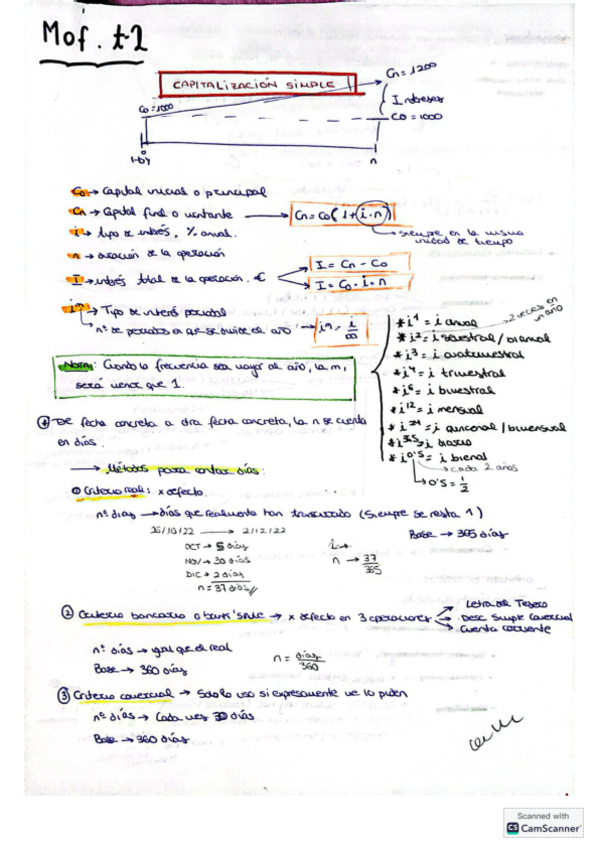 Mof. t-2
CAPITALIZACIÓN SIMPLE
Cn = 1200
Intereses
Co = 1000
Co = 1000
n
Co → Capital inicial o principal
Cn → Capital final o montante → Cn = Co(1+(i·n))
i → tipo de interés, % anual.
→ siempre en la misma unidad de tiempo
n → duración de la operación
I → interés total de la operación. €
I = Cn - Co
I = Co · i · n
i^m → Tipo de interés periodal
→ nº de periodos en que se divide el año → i^m = i/m
* i^1 = i anual
* i^2 = i semestral / bianual → 2 veces en un año
* i^3 = i cuatrimestral
* i^4 = i trimestral
* i^6 = i bimestral
* i^12 = i mensual
* i^24 = i quincenal / bimensual
* i^365 = i diario
* i^0'5 = i bienal
→ cada 2 años
→ 0'5 = 1/2
NOTA: Cuando la frecuencia sea mayor al año, la m,
será menor que 1.
* De fecha concreta a otra fecha concreta, la n se cuenta
en días.
→ Métodos para contar días:
① Criterio real: x defecto.
nº días → días que realmente han transcurrido (Siempre se resta 1)
26/10/22 → 2/12/22
Base → 365 días
OCT → 5 días
NOV → 30 días
DIC → 2 días
n = 37 días //
n → 37/365
② Criterio bancario o → x defecto en 3 operaciones
→ Letra del Tesoro
→ Desc Simple Comercial
→ Cuenta corriente
nº días → igual que el real
Base → 360 días
n = días/360
③ Criterio comercial → Solo lo uso si expresamente me lo piden
nº días → Cada mes 30 días
Base → 360 días
Scanned with
CS CamScanner